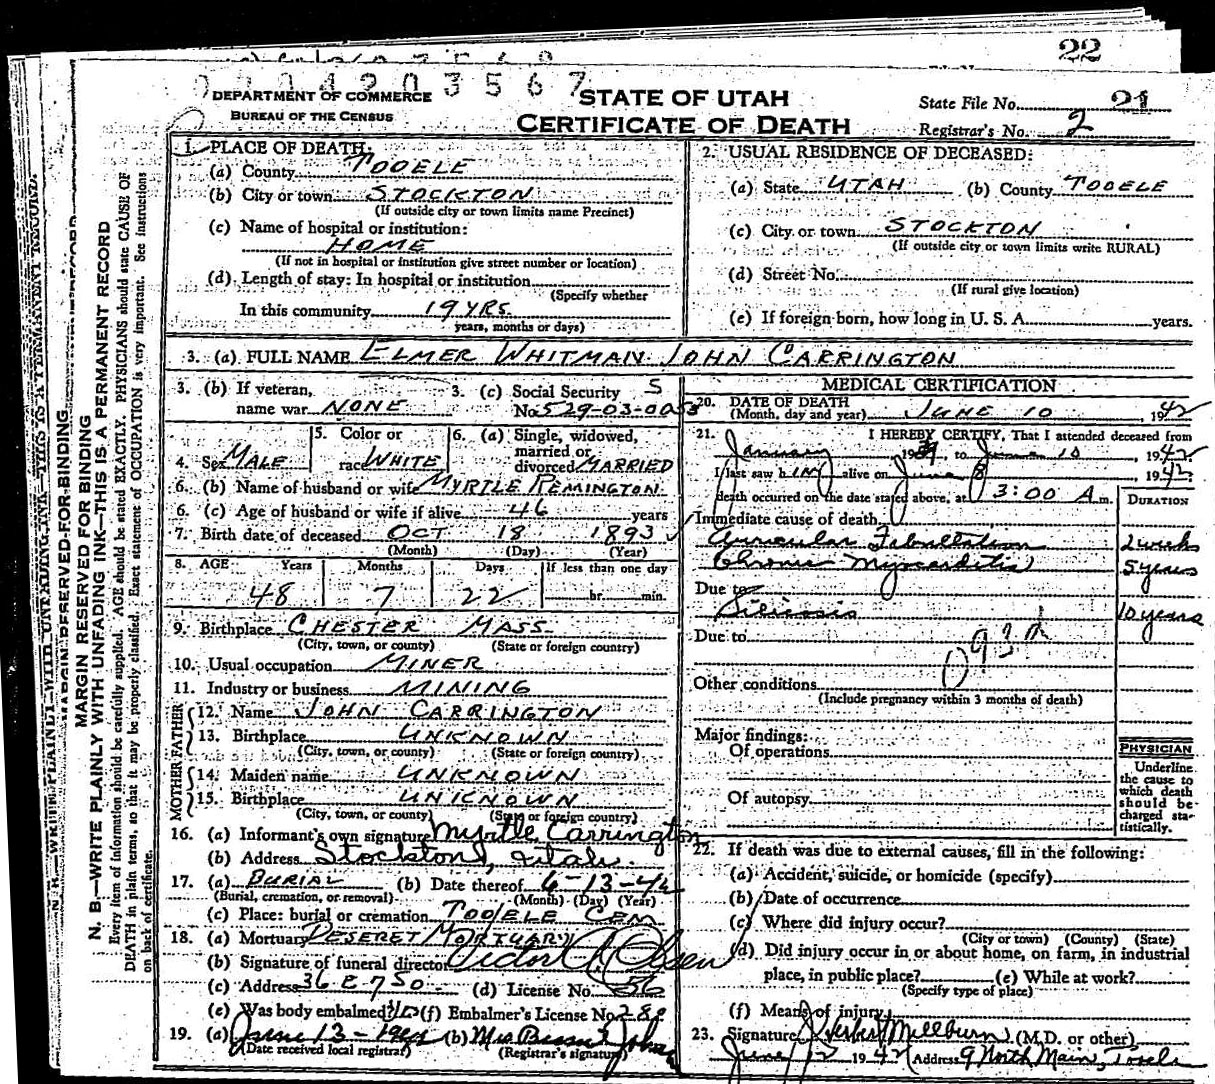 22
0 0 0 4 2 0 3 5 6 7
DEPARTMENT OF COMMERCE
BUREAU OF THE CENSUS
STATE OF UTAH
CERTIFICATE OF DEATH
State File No. 21
Registrar's No. 2
1. PLACE OF DEATH:
(a) County TOOELE
(b) City or town STOCKTON
(If outside city or town limits name Precinct)
(c) Name of hospital or institution:
HOME
(If not in hospital or institution give street number or location)
(d) Length of stay: In hospital or institution
(Specify whether
In this community 19 YRS.
years, months or days)
2. USUAL RESIDENCE OF DECEASED:
(a) State UTAH (b) County TOOELE
(c) City or town STOCKTON
(If outside city or town limits write RURAL)
(d) Street No.
(If rural give location)
(e) If foreign born, how long in U. S. A. years.
3. (a) FULL NAME ELMER WHITMAN JOHN CARRINGTON
3. (b) If veteran, name war NONE
3. (c) Social Security No. 529-03-0058
4. Sex MALE
5. Color or race WHITE
6. (a) Single, widowed, married or divorced MARRIED
6. (b) Name of husband or wife MYRTLE REMINGTON
6. (c) Age of husband or wife if alive 46 years
7. Birth date of deceased OCT 18 1893
(Month) (Day) (Year)
8. AGE Years Months Days If less than one day
48 7 22 hr. min.
9. Birthplace CHESTER MASS.
(City, town, or county) (State or foreign country)
10. Usual occupation MINER
11. Industry or business MINING
FATHER
12. Name JOHN CARRINGTON
13. Birthplace UNKNOWN
(City, town, or county) (State or foreign country)
MOTHER
14. Maiden name UNKNOWN
15. Birthplace UNKNOWN
(City, town, or county) (State or foreign country)
16. (a) Informant's own signature Myrtle Carrington
(b) Address Stockton, Utah.
17. (a) BURIAL (b) Date thereof 6-13-42
(Burial, cremation, or removal) (Month) (Day) (Year)
(c) Place: burial or cremation TOOELE CEM
18. (a) Mortuary DESERET MORTUARY
(b) Signature of funeral director Victor Olsen
(c) Address 36 E 7 SO. (d) License No. 56
(e) Was body embalmed? (f) Embalmer's License No. 288
19. (a) June 13-1942 (b) Mrs
(Date received local registrar) (Registrar's signature)
MEDICAL CERTIFICATION
20. DATE OF DEATH
(Month, day and year) JUNE 10 1942
21. I HEREBY CERTIFY, That I attended deceased from
January 1939, to June 10, 1942
I last saw him alive on June 8 1942
death occurred on the date stated above, at 3:00 A m.
DURATION
Immediate cause of death
Auricular Fibrillation 2 weeks
Chronic Myocarditis 5 years
Due to
Silicosis 10 years
Due to
Other conditions
(Include pregnancy within 3 months of death)
Major findings:
Of operations
Of autopsy
PHYSICIAN
Underline the cause to which death should be charged statistically.
22. If death was due to external causes, fill in the following:
(a) Accident, suicide, or homicide (specify)
(b) Date of occurrence
(c) Where did injury occur?
(City or town) (County) (State)
(d) Did injury occur in or about home, on farm, in industrial
place, in public place? (e) While at work?
(Specify type of place)
(f) Means of injury
23. Signature Herbert Millburn (M.D. or other)
June 12 1942 Address 9 North Main, Tooele
MARGIN RESERVED FOR BINDING
N. B.—WRITE PLAINLY WITH UNFADING INK—THIS IS A PERMANENT RECORD
Every item of information should be carefully supplied. AGE should be stated EXACTLY. PHYSICIANS should state CAUSE OF
DEATH in plain terms, so that it may be properly classified. Exact statement of OCCUPATION is very important. See instructions
on back of certificate.